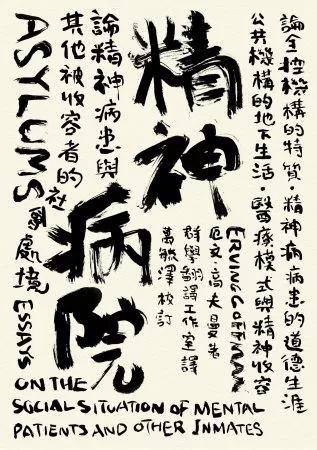 論全控機構的特質·精神病患的道德生涯
公共機構的地下生活·醫療模式與精神收容
精神
病院
ERVING GOFFMAN
厄文·高夫曼 著
群學翻譯工作室 譯
萬毓澤 校訂
論精神病患與
其他被收容者的
社會處境
ASYLUMS
ESSAYS
ON THE
SOCIAL SITUATION OF MENTAL
PATIENTS AND OTHER INMATES